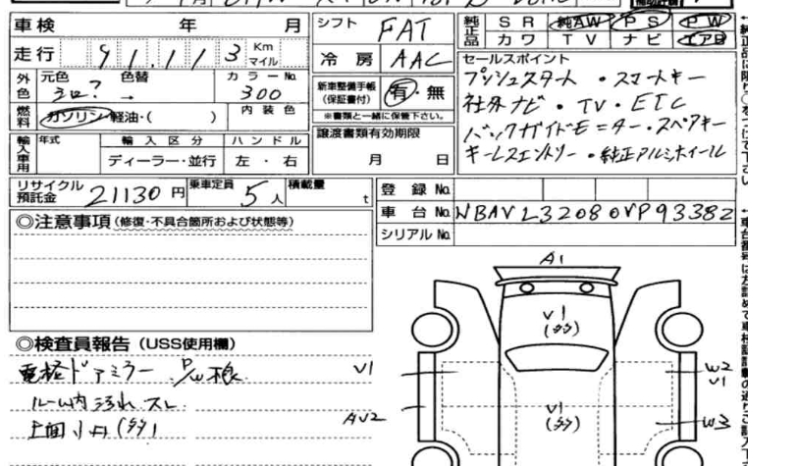 車検 年 月
シフト FAT
純正品 SR 純AW PS PW
カワ TV ナビ エアB
走行 91,113 Km マイル
冷房 AAC
セールスポイント
プッシュスタート・スマートキー
社外ナビ・TV・ETC
バックガイドモニター・スペアキー
キーレスエントリー・純正アルミホイール
外色 元色 色替 カラーNo.
→ 300
新車整備手帳(保証書付) 有・無
※書類と一緒に保管下さい。
燃料 ガソリン・軽油・( ) 内装色
輸入車用 年式 輸入区分 ハンドル
ディーラー・並行 左・右
譲渡書類有効期限
月 日
リサイクル預託金 21130円 乗車定員 5人 積載量 t
登録No.
車台No. WBAVL32080VP93382
シリアルNo.
◎注意事項(修復・不具合箇所および状態等)
A1
V1
(多)
◎検査員報告(USS使用欄)
電格ドアミラー
V1
ルーム内汚れ スレ
AV2
V1
(多)
W2
V1
W3